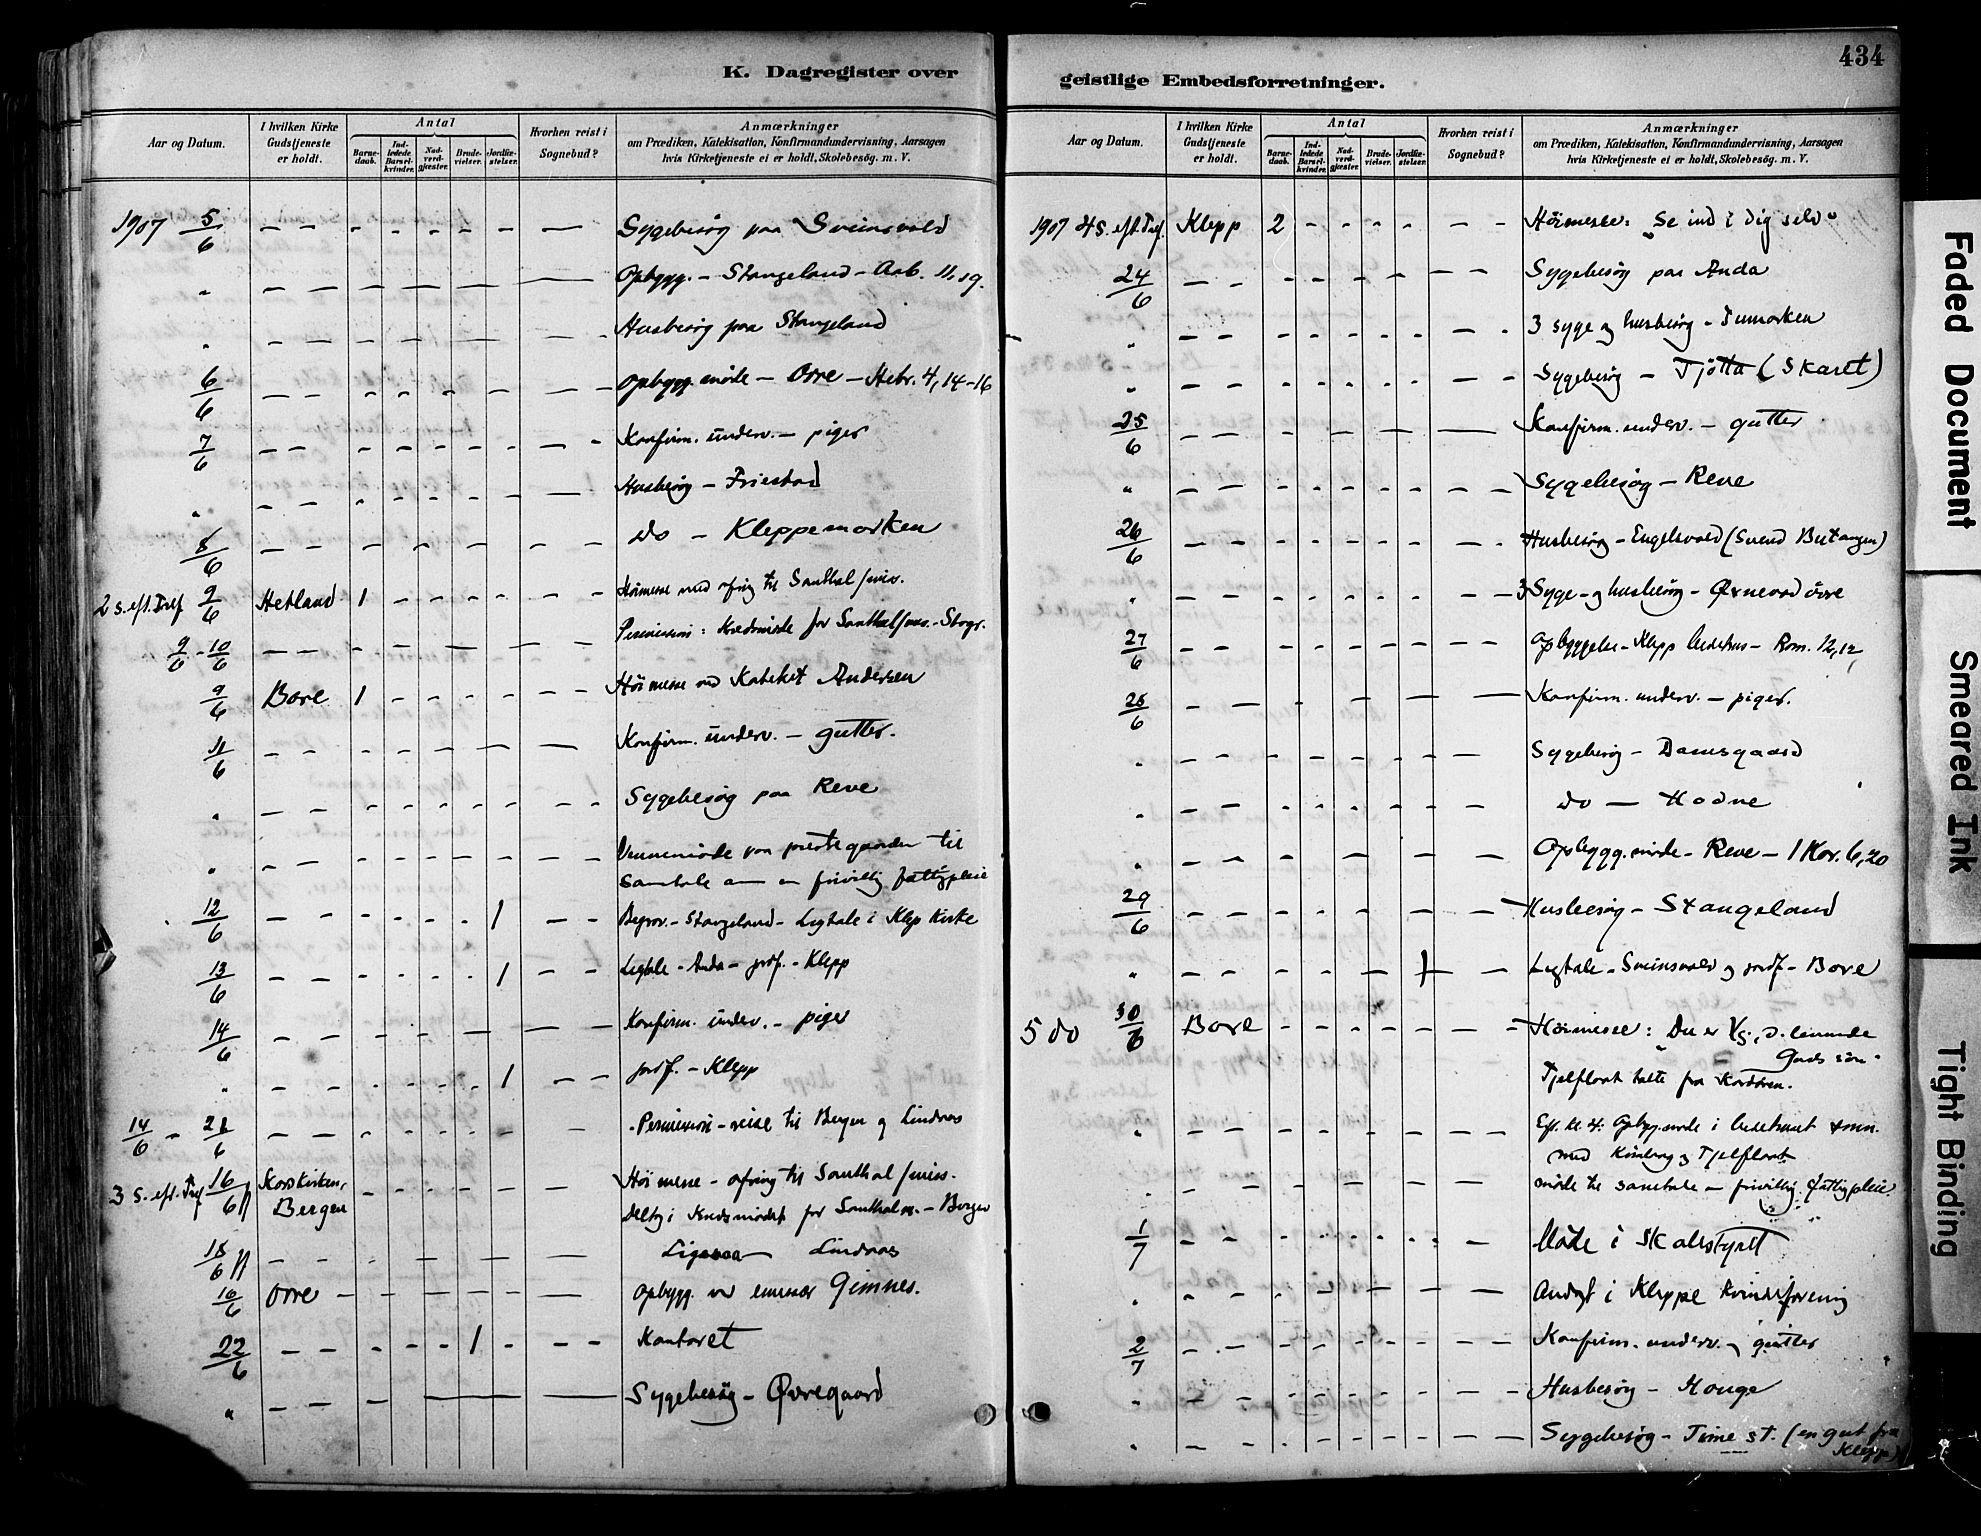 K. Dagregister over
Aar og Datum.
I hvilken Kirke Gudstjeneste er holdt.
Antal
Barne-daab.
Ind-ledede Barsel-kvinder.
Nad-verd-gjæster.
Brude-vielser.
Jordfæ-stelser.
Hvorhen reist i Sognebud?
Anmærkninger
om Prædiken, Katekisation, Konfirmandundervisning, Aarsagen
hvis Kirketjeneste ei er holdt, Skolebesøg. m. V.
1907 5/6 Sygebesøg paa Sveinsvold
" Opbygg. - Stangeland - Aab. 11,19.
" Husbesøg paa Stangeland
6/6 Opbygg. møde - Orre - Hebr. 4, 14-16
7/6 Konfirm. underv. - piger
" Husbesøg - Friestad
8/6 do - Kleppemarken
2 s. eft. Tref 9/6 Hetland 1 Høimesse med ofring til Santhal
9/6 - 10/6 Permission: Kredsmøde for
9/6 Bore 1 Høimesse ved Kateket Andersen
11/6 Konfirm. underv. - gutter.
" Sygebesøg paa Reve
" Vennemøde paa prestegaarden til
samtale om en frivillig fattigpleie
12/6 1 - Stangeland - Ligtale i Klep Kirke
13/6 1 Ligtale - Anda - jordf. - Klepp
14/6 Konfirm. underv. - piger
" 1 jordf. - Klepp
14/6 - 21/6 Permission - reise til Bergen og Lindaas
3 s. eft. Tref 16/6 Korskirken, Bergen Høimesse - ofring til Santhal
Deltog i Kredsmødet for - Bergen
18/6 Lindaas
16/6 Orre Opbygg. ved emissær Gimnes.
22/6 1 Kontoret
" Sygebesøg - Øvregaard
geistlige Embedsforretninger.
434
Aar og Datum.
I hvilken Kirke Gudstjeneste er holdt.
Antal
Barne-daab.
Ind-ledede Barsel-kvinder.
Nad-verd-gjæster.
Brude-vielser.
Jordfæ-stelser.
Hvorhen reist i Sognebud?
Anmærkninger
om Prædiken, Katekisation, Konfirmandundervisning, Aarsagen
hvis Kirketjeneste ei er holdt, Skolebesøg. m. V.
1907 4 s. eft. Tref. Klepp 2 Høimesse: "Se ind i dig selv"
24/6 Sygebesøg paa Anda
" 3 syge og husbesøg - Tumarken
" Sygebesøg - Tjøtta (Skaret)
25/6 Konfirm. underv. - gutter
" Sygebesøg - Reve
26/6 Husbesøg - Engelsvold (Svend Butangen)
" 3 Syge- og husbesøg - Ørnevad Orre
27/6 Opbyggelse - Klepp bedehus - Rom. 12,12
28/6 Konfirm. underv. - piger.
" Sygebesøg - Damsgaard
" do - Hodne
" Opbygg. møde - Reve - 1 Kor. 6,20
29/6 Husbesøg - Stangeland
" 1 Ligtale - Sveinsvold og jordf. - Bore
5 do 30/6 Bore Høimesse: "Du er Xs, d. levende
Guds søn"
Tjelflaat talte fra Kordøren.
" Eft. kl. 4. Opbyg. møde i bedehuset
med og Tjelflaat
" møde til samtale om frivillig fattigpleie
1/7 Møde i Skolestyret
" Andagt i Kleppe Kvindeforening
2/7 Konfirm. underv. - gutter
" Husbesøg - Hauge
" Sygebesøg - Time st. (en gut fra
Klepp)
Faded Document
Smeared Ink
Tight Binding